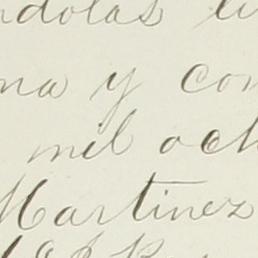 ndolas
na y con
mil och
Martinez